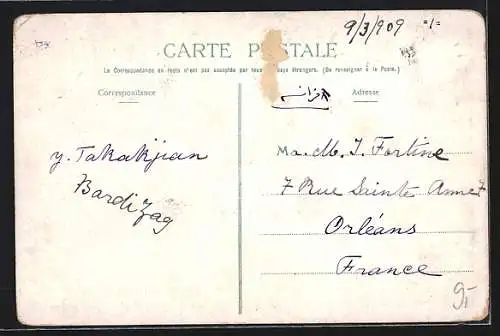 9/3/909 -1-
CARTE POSTALE
La Correspondance au recto n'est pas acceptée par tous pays étrangers. (Se renseigner à la Poste.)
Correspondance
Adresse
y. Takakjian
Bardizag
Ma. M. J. Fortine
7 Rue Sainte Anne 7
Orléans
France
9,-